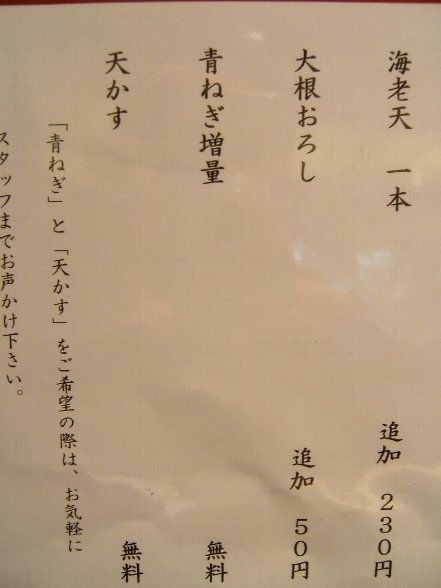 海老天 一本 追加 230円
大根おろし 追加 50円
青ねぎ増量 無料
天かす 無料
「青ねぎ」と「天かす」をご希望の際は、お気軽に
スタッフまでお声かけ下さい。